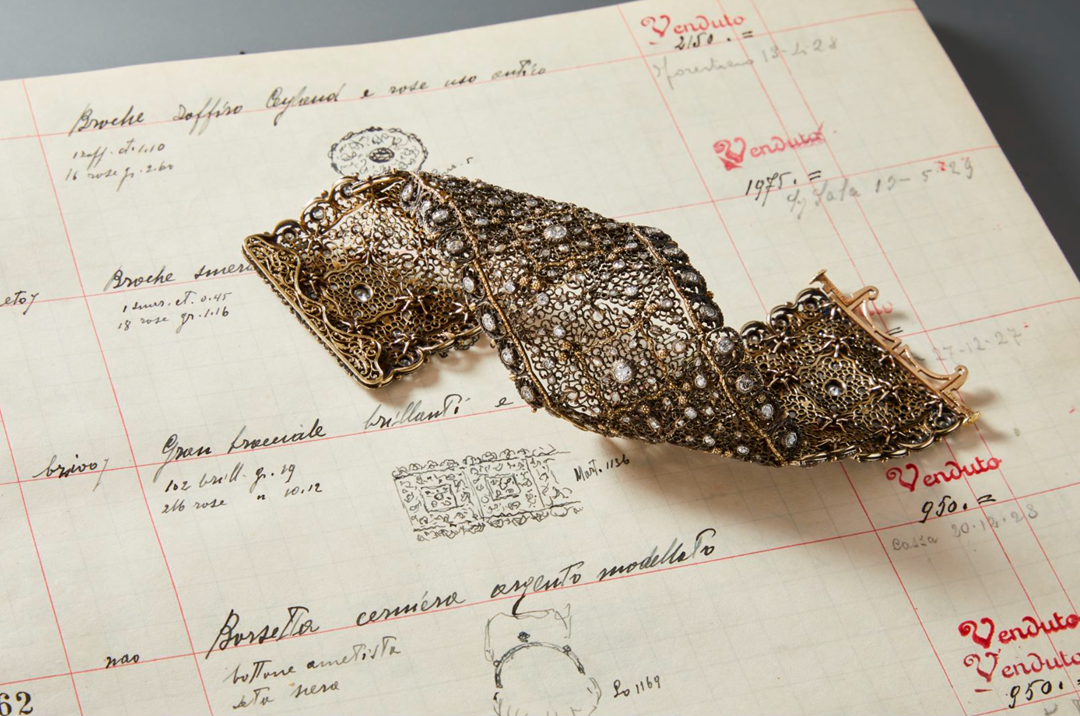 Venduto
2150. =
13-4-28
Broche Zaffiro Ceyland e rose uso antico
1 zaff. ct. 1.10
16 rose gr. 2.60
Venduto
1975. =
Sala 13-5-29
Broche smera
1 smer. ct. 0.45
18 rose gr. 1.16
=
27-12-27
Gran bracciale brillanti e
102 brill. g. 29
216 rose " 10.12
Mont. 1136
Venduto
950. =
Bassa 20.12.28
Borsetta cerniera argento modellato
bottone ametista
seta nera
1169
nao
Venduto
Venduto
950. =
62